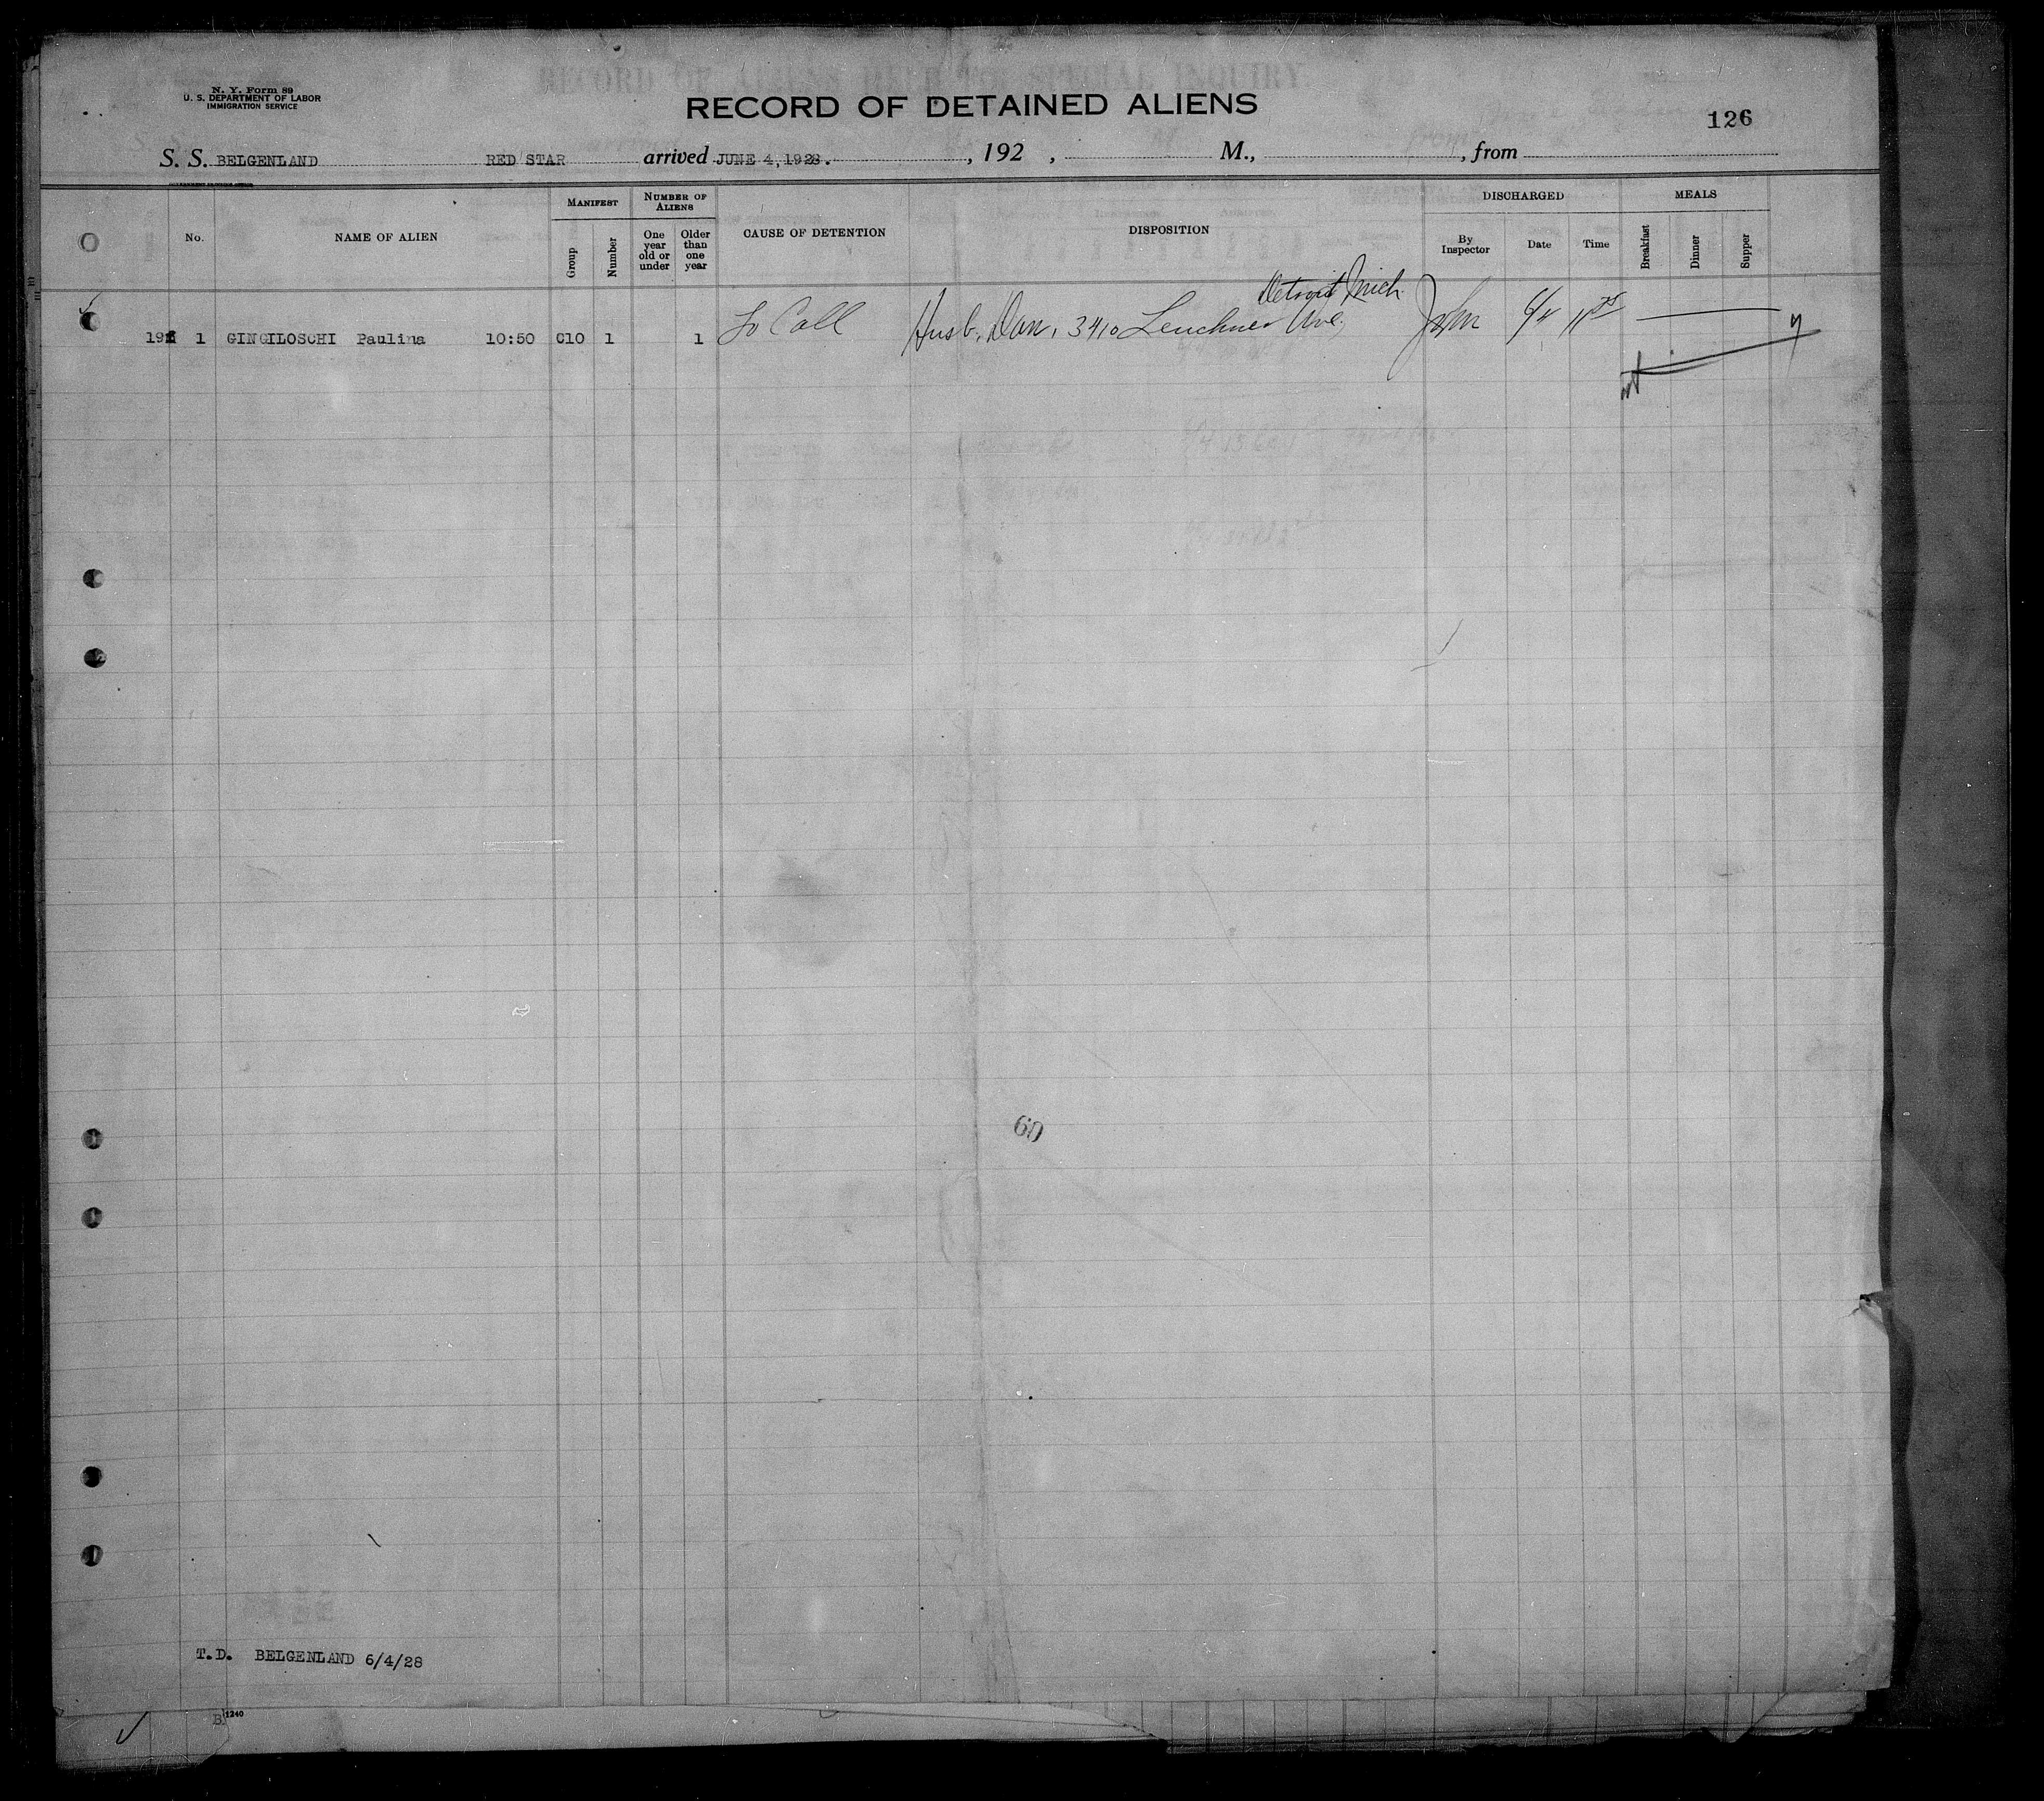 RECORD OF ALIENS HELD FOR SPECIAL INQUIRY.
N. Y. Form 89
U. S. DEPARTMENT OF LABOR
IMMIGRATION SERVICE
RECORD OF DETAINED ALIENS
126
S. S. BELGENLAND RED STAR arrived JUNE 4, 1928. , 192 , M., , from
No. NAME OF ALIEN MANIFEST Group Number NUMBER OF ALIENS One year old or under Older than one year CAUSE OF DETENTION DISPOSITION DISCHARGED By Inspector Date Time MEALS Breakfast Dinner Supper
Detroit Mich.
1 GINGILOSCHI Paulina 10:50 C10 1 1 To Call Husb. Dan, 3410 Ave, 6/4
60
T.D. BELGENLAND 6/4/28
B 1240